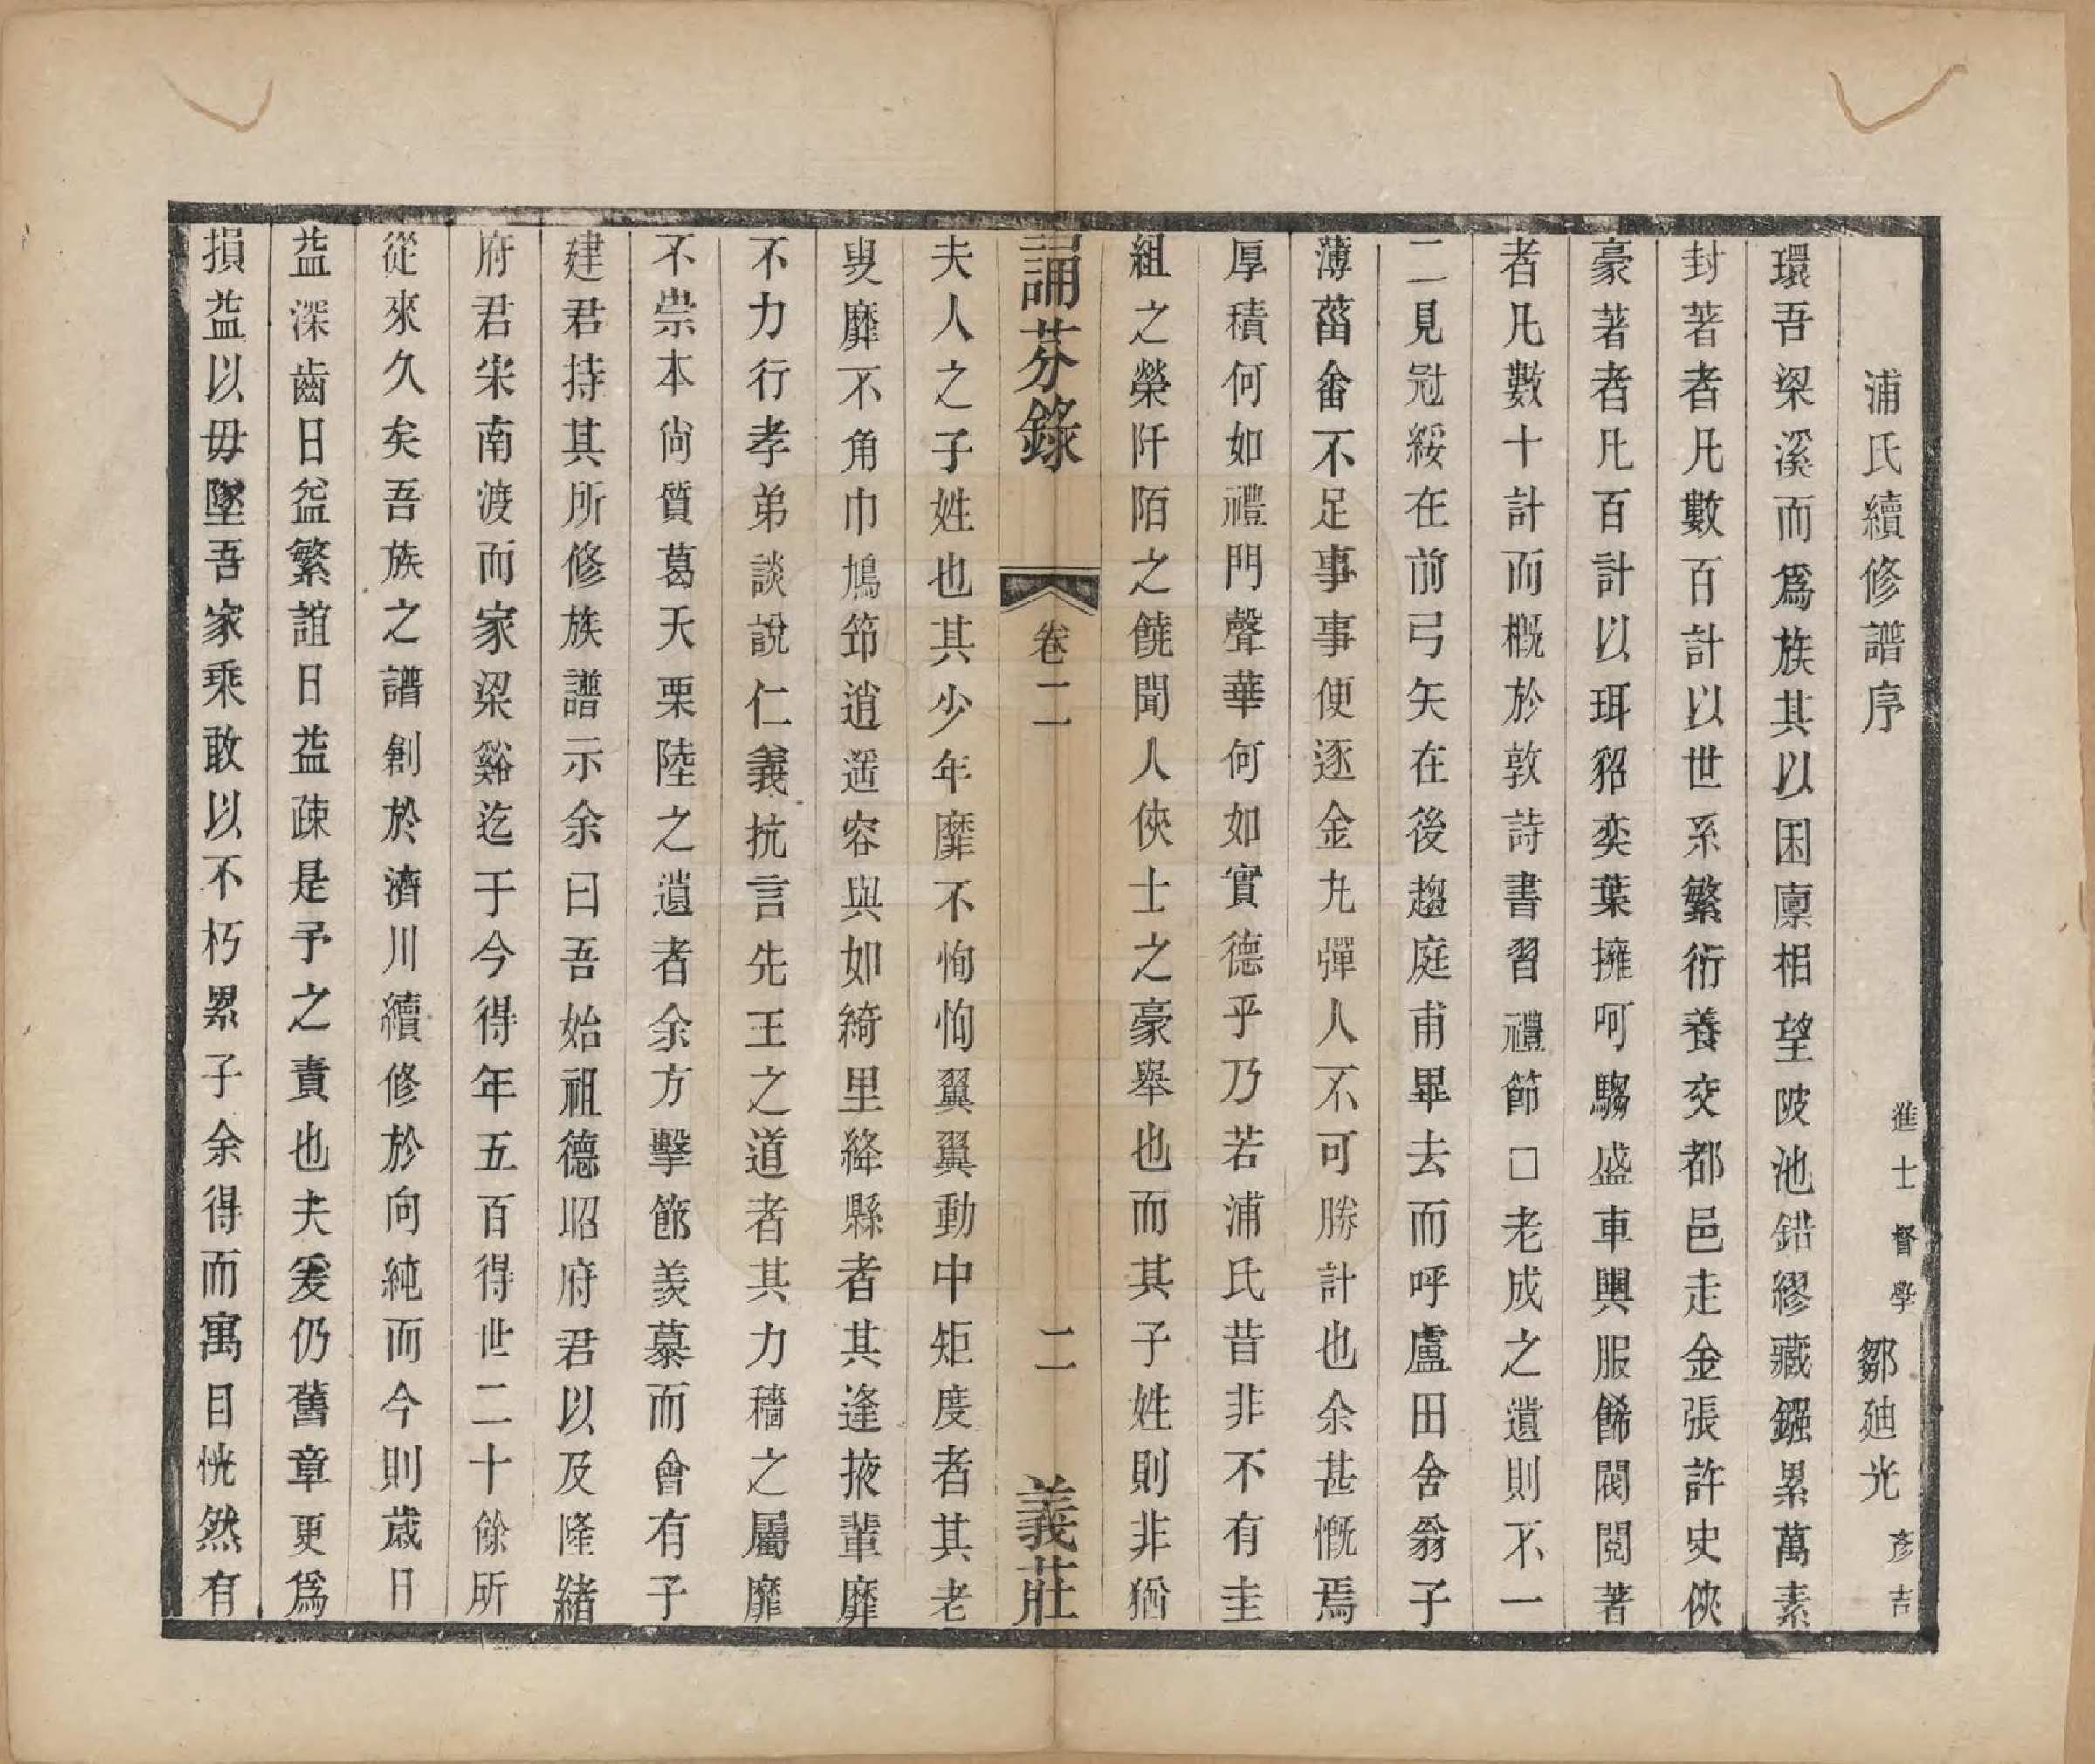 浦氏續修譜序
進士督學 鄒廸光 彥吉
環吾梁溪而爲族其以困廪相望陂池錯繆藏鏹累萬素
封著者凡數百計以世系繁衍養交都邑走金張許史俠
豪著者凡百計以珥貂奕葉擁呵騶盛車輿服餙閥閱著
者凡數十計而概於敦詩書習禮節□老成之遺則不一
二見冠綏在前弓矢在後趨庭甫畢去而呼盧田舍翁子
薄菑畬不足事事便逐金九彈人不可勝計也余甚慨焉
厚積何如禮門聲華何如實德乎乃若浦氏昔非不有圭
組之榮阡陌之饒聞人俠士之豪舉也而其子姓則非猶
誦芬錄 卷二 二 義莊
夫人之子姓也其少年靡不恂恂翼翼動中矩度者其老
叟靡不角巾鳩笻逍遥容與如綺里絳縣者其逢掖輩靡
不力行孝弟談說仁義抗言先王之道者其力穡之屬靡
不崇本尙質葛天栗陸之遺者余方擊節羡慕而會有子
建君持其所修族譜示余曰吾始祖德昭府君以及隆緒
府君宋南渡而家梁谿迄于今得年五百得世二十餘所
從來久矣吾族之譜創於濟川續修於向純而今則歲日
益深齒日益繁誼日益疎是予之責也夫爰仍舊章更爲
損益以毋墜吾家乘敢以不朽累子余得而寓目恍然有